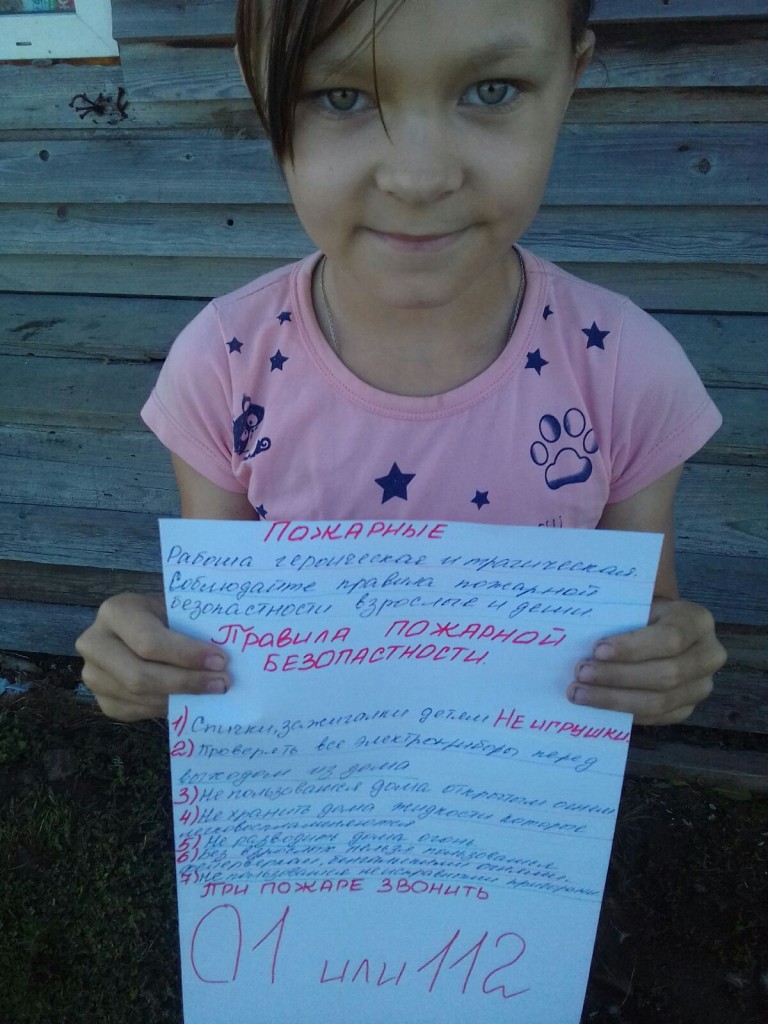 ПОЖАРНЫЕ
Работа героическая и трагическая.
Соблюдайте правила пожарной
безопастности взрослые и дети.
ПРАВИЛА ПОЖАРНОЙ
БЕЗОПАСТНОСТИ.
1) Спички, зажигалки детям НЕ ИГРУШКИ
2) Проверять все электроприборы перед
выходом из дома
3) Не пользоваться дома открытым огнём
4) Не хранить дома жидкости которые
легковоспламеняются
5) Не разводить дома огонь
6) Без взрослых нельзя пользоваться
фейерверком, бенгальскими огнями.
7) Не пользоваться неисправными приборами
ПРИ ПОЖАРЕ ЗВОНИТЬ
01 или 112